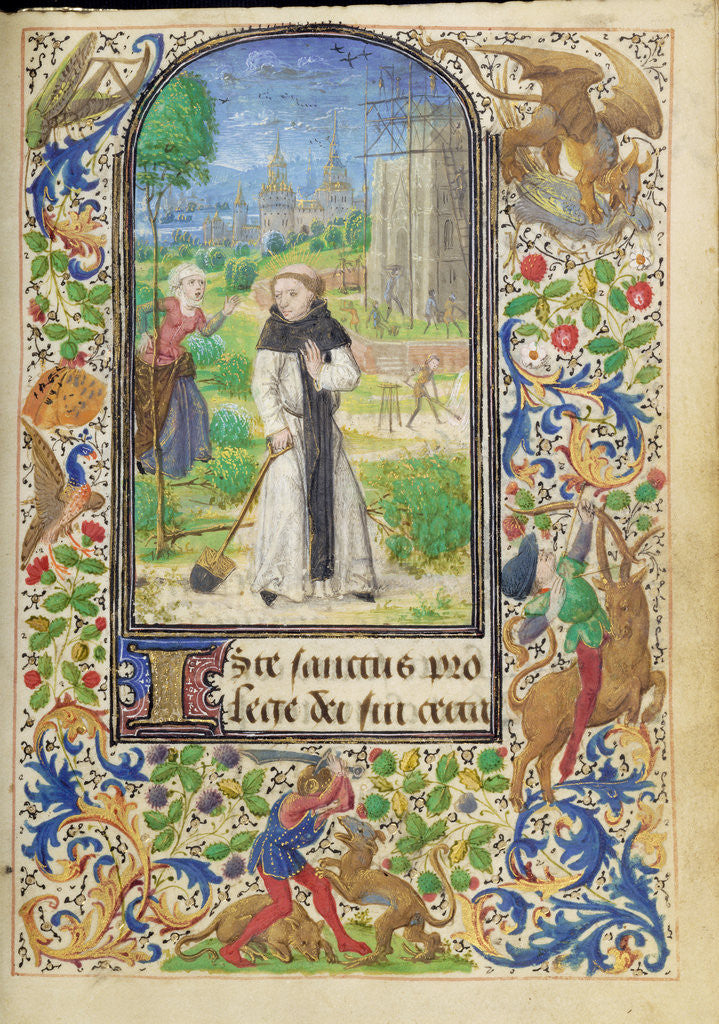 Iste sanctus pro
lege dei sui certa